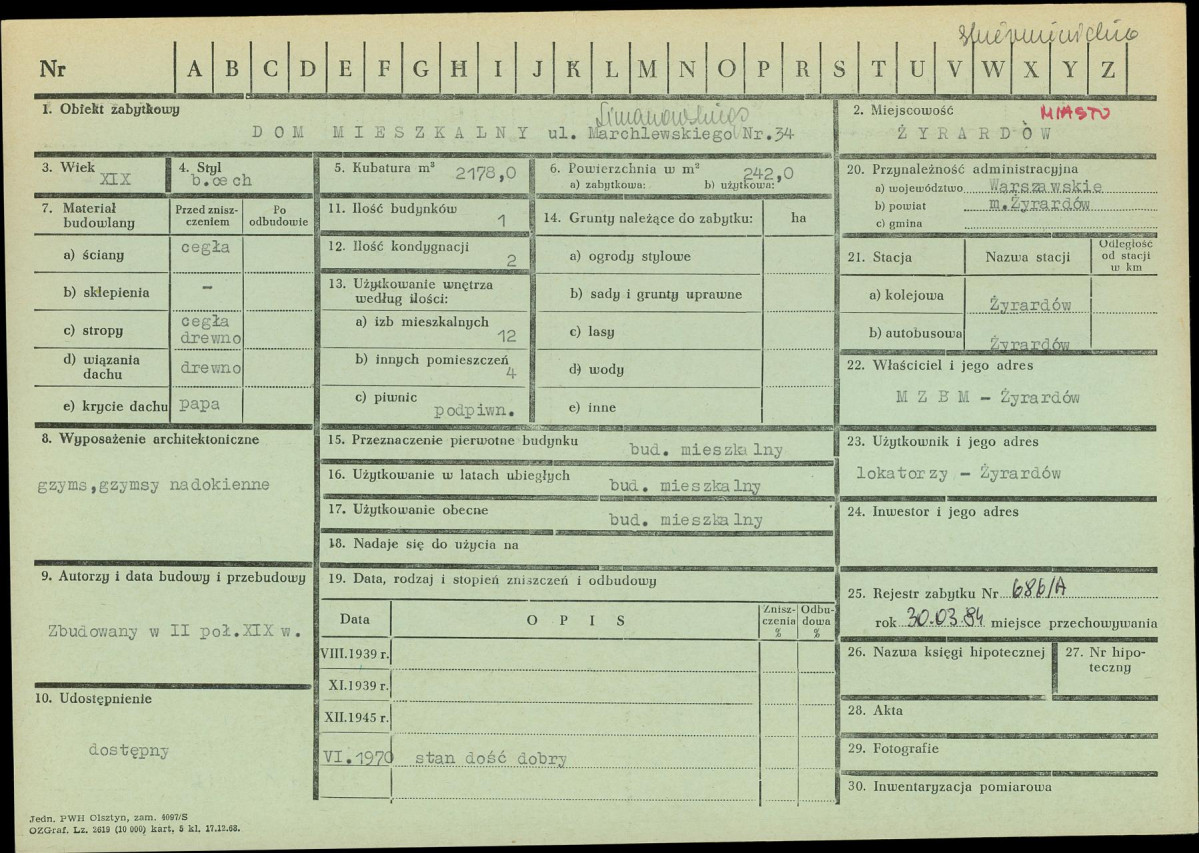 Skierniewickie
Nr A B C D E F G H I J K L M N O P R S T U V W X Y Z
1. Obiekt zabytkowy
Limanowskiego
DOM MIESZKALNY ul. Marchlewskiego Nr.34
2. Miejscowość MIASTO
ŻYRARDÓW
3. Wiek
XIX
4. Styl
b.cech
5. Kubatura m³ 2178,0
6. Powierzchnia w m² 242,0
a) zabytkowa: b) użytkowa:
7. Materiał budowlany
Przed zniszczeniem
Po odbudowie
a) ściany cegła
b) sklepienia –
c) stropy cegła
drewno
d) wiązania dachu drewno
e) krycie dachu papa
8. Wyposażenie architektoniczne
gzyms,gzymsy nadokienne
9. Autorzy i data budowy i przebudowy
Zbudowany w II poł.XIX w.
10. Udostępnienie
dostępny
11. Ilość budynków 1
12. Ilość kondygnacji 2
13. Użytkowanie wnętrza
według ilości:
a) izb mieszkalnych 12
b) innych pomieszczeń 4
c) piwnic podpiwn.
14. Grunty należące do zabytku: ha
a) ogrody stylowe
b) sady i grunty uprawne
c) lasy
d) wody
e) inne
15. Przeznaczenie pierwotne budynku bud. mieszkalny
16. Użytkowanie w latach ubiegłych bud. mieszkalny
17. Użytkowanie obecne bud. mieszkalny
18. Nadaje się do użycia na
19. Data, rodzaj i stopień zniszczeń i odbudowy
Data OPIS Zniszczenia % Odbudowa %
VIII.1939 r.
XI.1939 r.
XII.1945 r.
VI.1970 stan dość dobry
20. Przynależność administracyjna
a) województwo Warszawskie
b) powiat m.Żyrardów
c) gmina
21. Stacja Nazwa stacji Odległość od stacji w km
a) kolejowa Żyrardów
b) autobusowa Żyrardów
22. Właściciel i jego adres
MZBM – Żyrardów
23. Użytkownik i jego adres
lokatorzy – Żyrardów
24. Inwestor i jego adres
25. Rejestr zabytku Nr 686/A
rok 30.03.84 miejsce przechowywania
26. Nazwa księgi hipotecznej
27. Nr hipoteczny
28. Akta
29. Fotografie
30. Inwentaryzacja pomiarowa
Jedn. PWH Olsztyn, zam. 4097/S
OZGraf. Lz. 2619 (10 000) kart, 5 kl. 17.12.68.